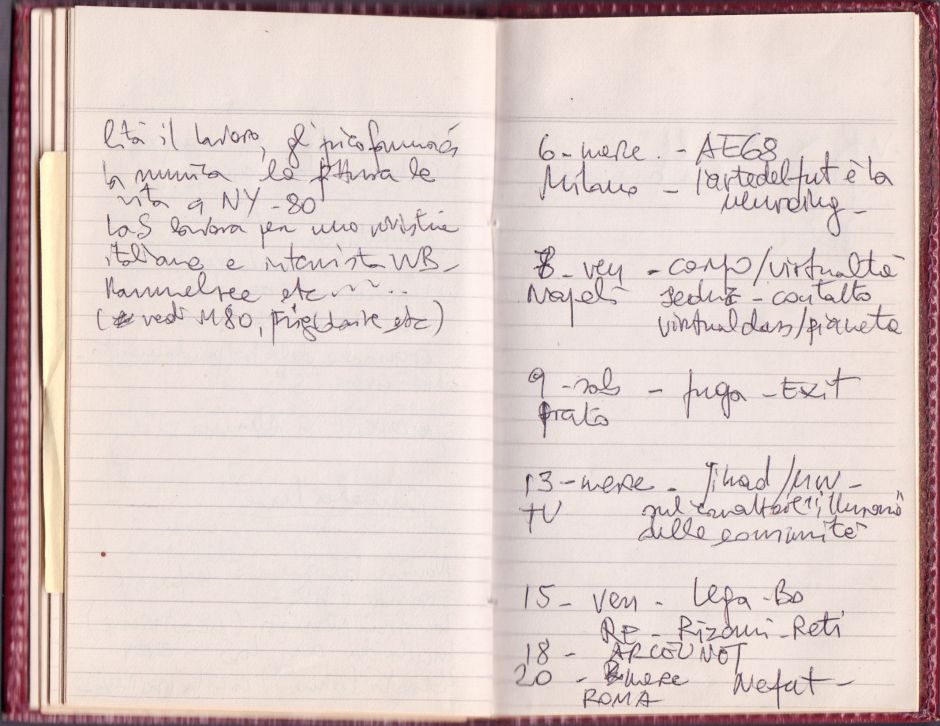 lità il lavoro, gli psicofarmaci
la nascita la pittura la
vita a NY-80
lavora per una rivista
italiana e intervista WB-
Rammelzee etc....
(vedi M80, Frigidaire etc)
6-merc. - AE68
Milano - l'arte del fut è la
8-ven - corpo/virtualità
Napoli seduz - contatto
virtual class/pianeta
9-sab - fuga - Exit
Prato
13-merc - Jihad/MW-
TV sul carattere illusorio
delle comunità
15- ven - Lega-Bo
RE - Rizomi-Reti
18 - ARCOUNOT
20 - merc Nefut-
ROMA